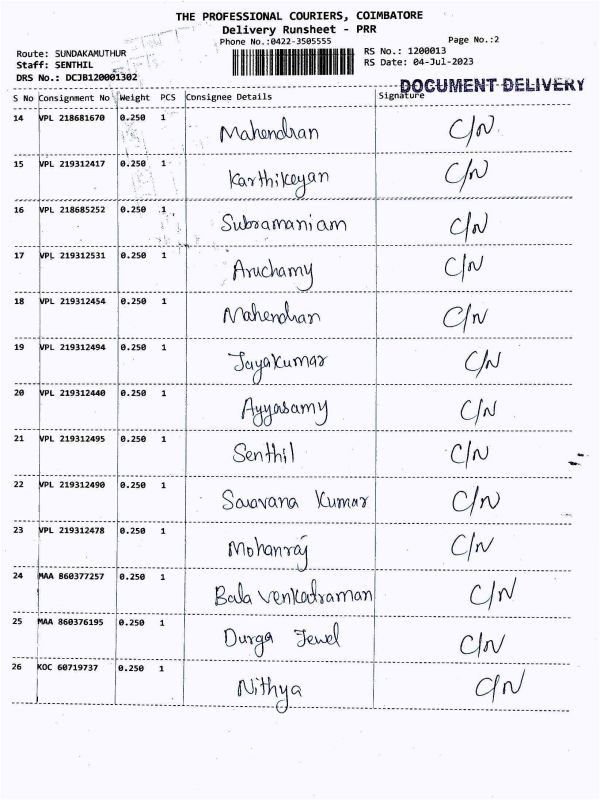 THE PROFESSIONAL COURIERS, COIMBATORE
Delivery Runsheet - PRR
Phone No.:0422-3505555 Page No.:2
Route: SUNDAKAMUTHUR RS No.: 1200013
Staff: SENTHIL RS Date: 04-Jul-2023
DRS No.: DCJB120001302
DOCUMENT DELIVERY
S No Consignment No Weight PCS Consignee Details Signature
14 VPL 218681670 0.250 1 Mahendran C/N
15 VPL 219312417 0.250 1 Karthikeyan C/N
16 VPL 218685252 0.250 1 Subramaniam C/N
17 VPL 219312531 0.250 1 Aruchamy C/N
18 VPL 219312454 0.250 1 Mahendran C/N
19 VPL 219312494 0.250 1 Jayakumar C/N
20 VPL 219312440 0.250 1 Ayyasamy C/N
21 VPL 219312495 0.250 1 Senthil C/N
22 VPL 219312490 0.250 1 Saravana Kumar C/N
23 VPL 219312478 0.250 1 Mohanraj C/N
24 MAA 860377257 0.250 1 Bala Venkatraman C/N
25 MAA 860376195 0.250 1 Durga Jewel C/N
26 KOC 60719737 0.250 1 Nithya C/N